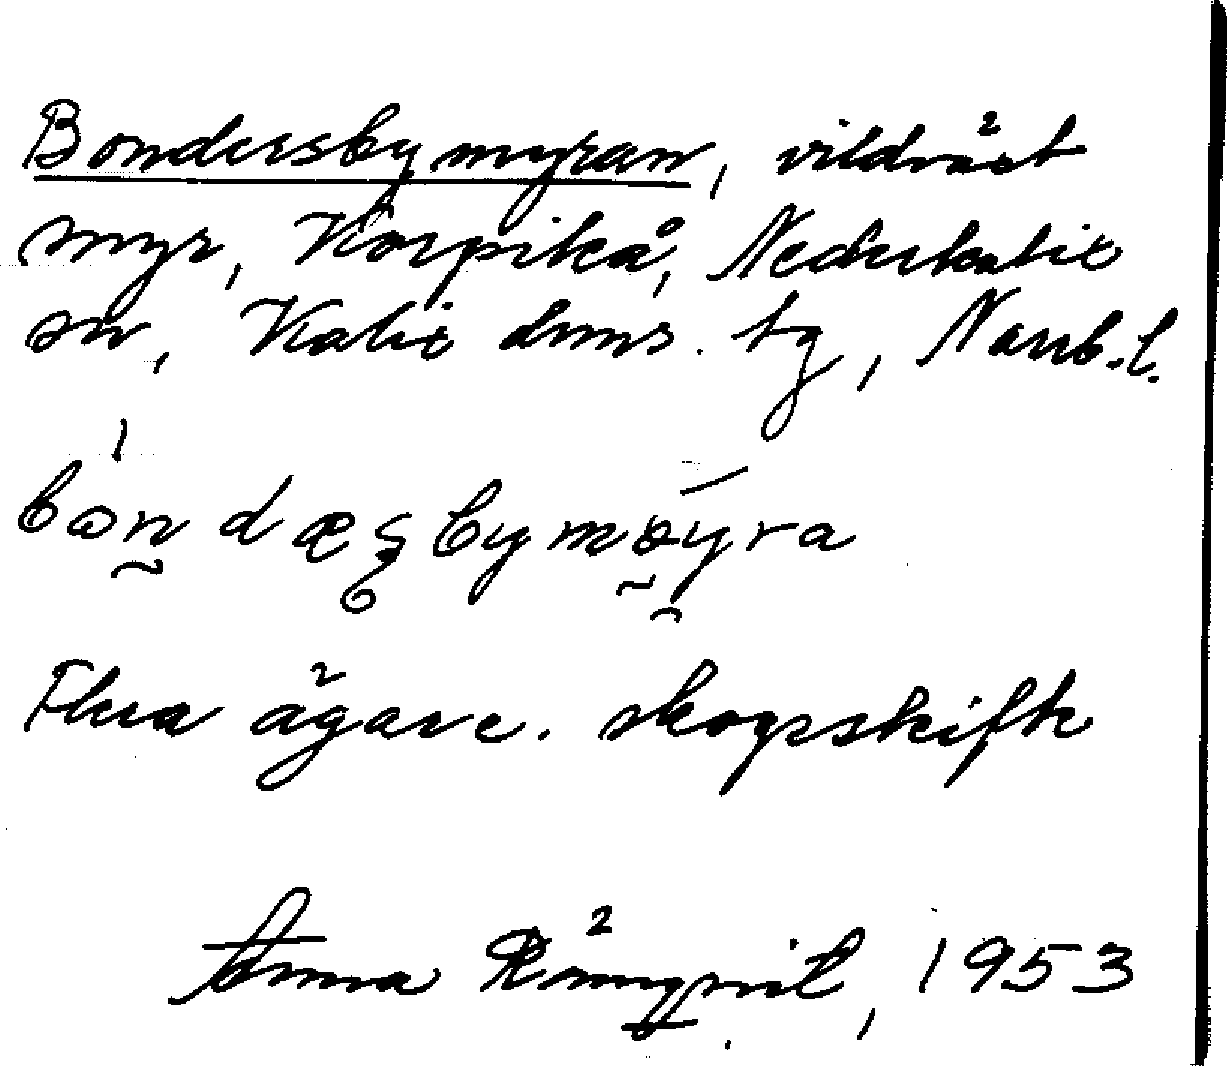 Bondersbymyran, vildväxt
myr, Korpikå, Nederkalix
sn, Kalix doms. tg, Norrb. l.
bòn dæʂbymøyra
Flera ägare. skogsskifte
Anna Rönnqvist, 1953